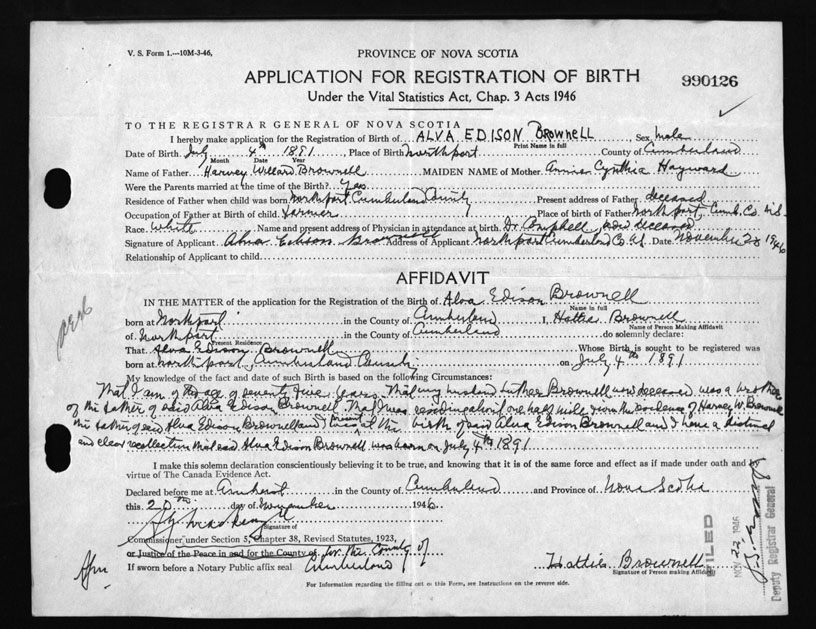 V. S. Form 1.—10M-3-46,
PROVINCE OF NOVA SCOTIA
APPLICATION FOR REGISTRATION OF BIRTH
990126
Under the Vital Statistics Act, Chap. 3 Acts 1946
TO THE REGISTRAR GENERAL OF NOVA SCOTIA
I hereby make application for the Registration of Birth of ALVA EDISON BROWNELL Sex Male
Print Name in full
Date of Birth July 4th 1891 Place of Birth Northport County of Cumberland
Month Date Year
Name of Father Harvey Willard Brownell MAIDEN NAME of Mother Cynthia Hayward
Were the Parents married at the time of the Birth? Yes
Residence of Father when child was born Northport Cumberland County Present Address of Father deceased
Occupation of Father at Birth of child Farmer Place of Birth of Father Northport, Cumb. Co. N.S.
Race White Name and present address of Physician in attendance at birth. Dr. Campbell, now deceased
Signature of Applicant Alva Edison Brownell Address of Applicant Northport Cumberland Co. N.S. Date November 20 1946
Relationship of Applicant to child
AFFIDAVIT
IN THE MATTER of the application for the Registration of the Birth of Alva Edison Brownell
Name in full
born at Northport in the County of Cumberland I, Hattie Brownell
Name of Person Making Affidavit
of Northport in the County of Cumberland do solemnly declare:
Present Residence
That Alva Edison Brownell Whose Birth is sought to be registered was
born at Northport, Cumberland County on July 4th 1891
My knowledge of the fact and date of such Birth is based on the following Circumstances:
That I am of the age of seventy five years. That my husband Luther Brownell now deceased was a brother
of the father of said Alva Edison Brownell. That I was residing about one half mile from the residence of Harvey W. Brownell
the father of said Alva Edison Brownell and at the birth of said Alva Edison Brownell and I have a distinct
and clear recollection that said Alva Edison Brownell was born on July 4th 1891
I make this solemn declaration conscientiously believing it to be true, and knowing that it is of the same force and effect as if made under oath and by
virtue of The Canada Evidence Act.
Declared before me at Amherst in the County of Cumberland and Province of Nova Scotia
this 20th day of November 1946
Signature of
Commissioner under Section 5, Chapter 38, Revised Statutes, 1923,
or Justice of the Peace in and for the County of for the County of
If sworn before a Notary Public affix seal Cumberland
Hattie Brownell
Signature of Person making Affidavit
For Information regarding the filling out of this Form, see Instructions on the reverse side.
FILED
NOV 22 1946
Deputy Registrar General